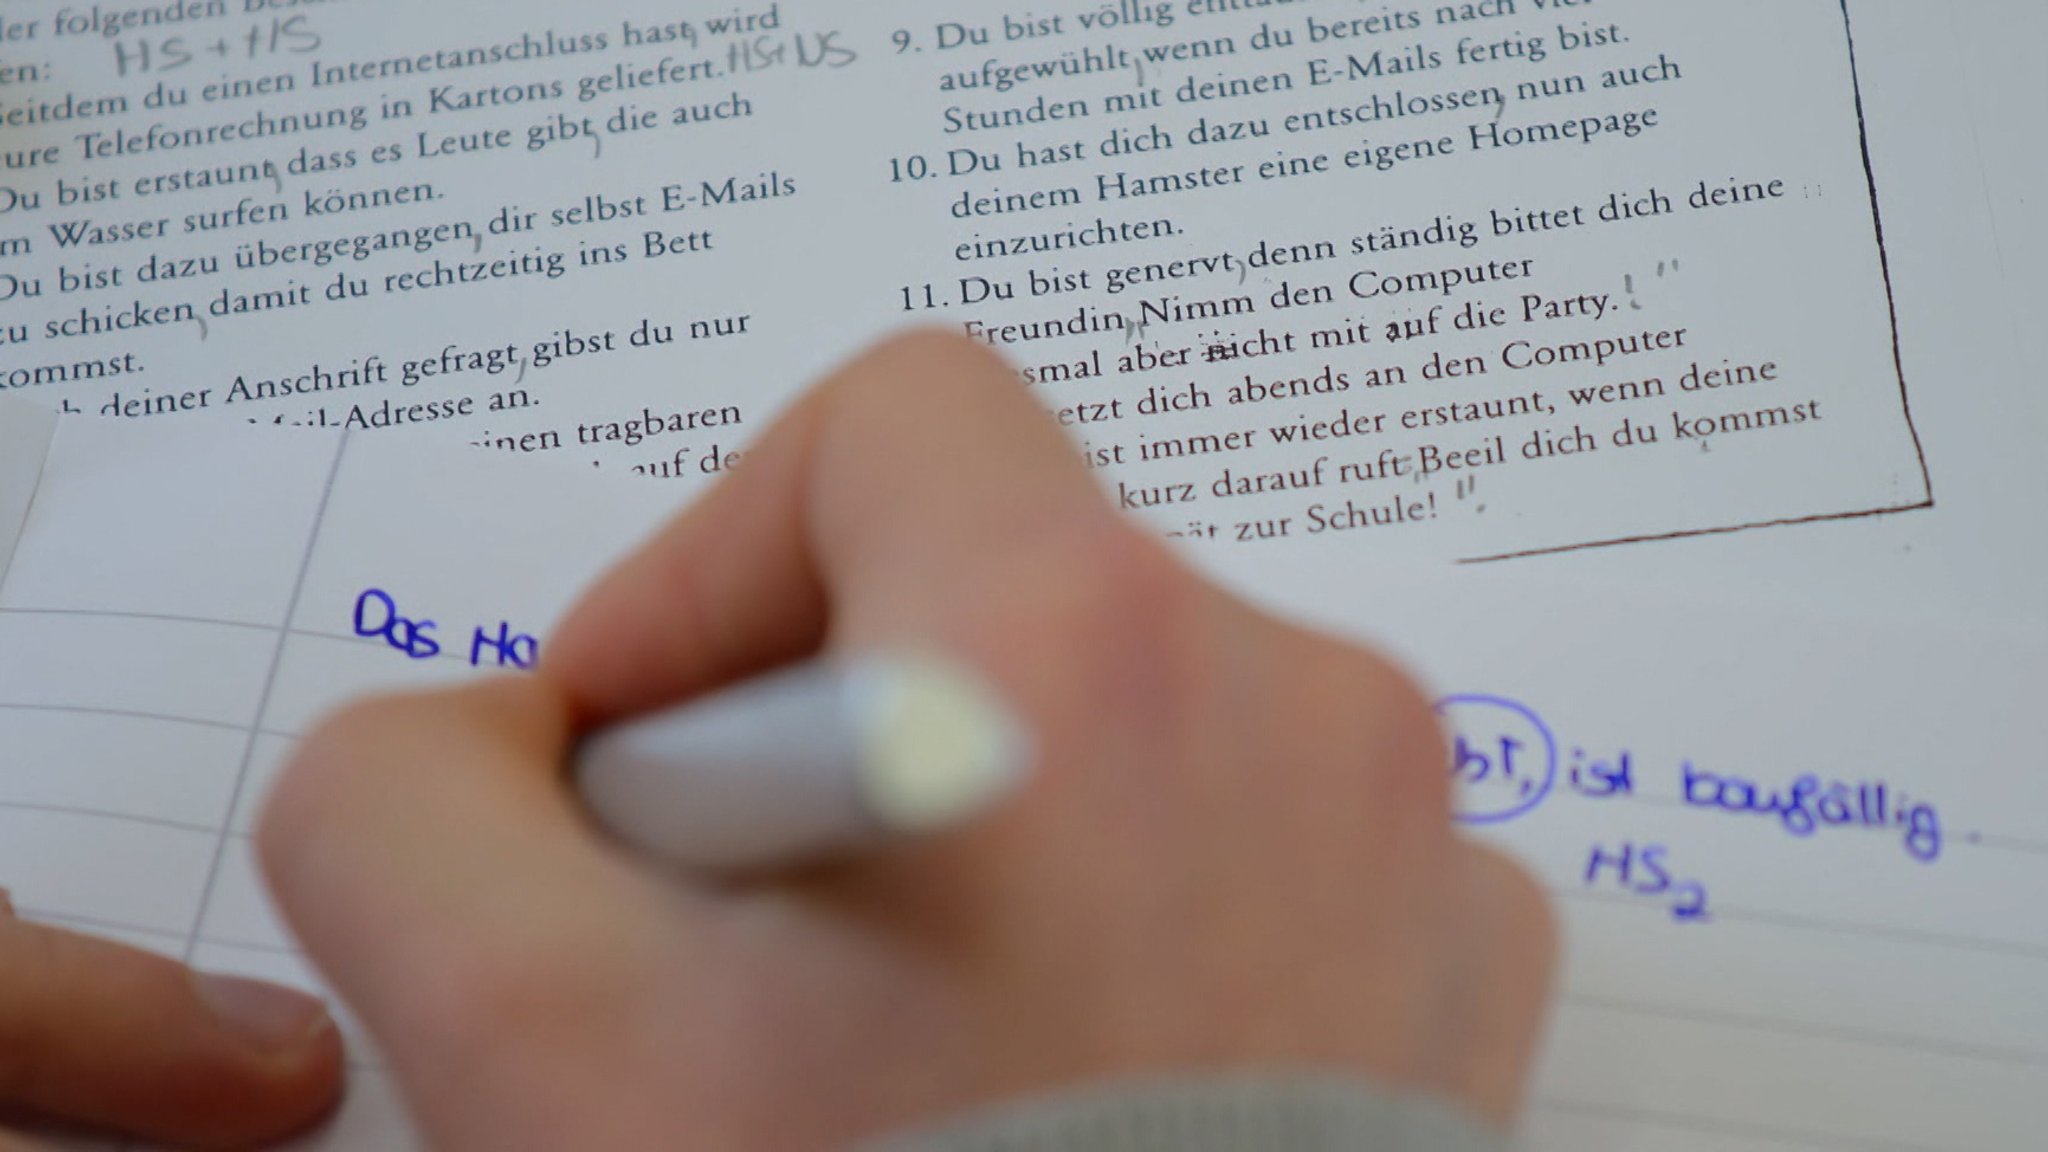 der folgenden
en: HS + HS
Seitdem du einen Internetanschluss hast, wird
ure Telefonrechnung in Kartons geliefert. HS+NS
Du bist erstaunt, dass es Leute gibt, die auch
m Wasser surfen können.
Du bist dazu übergegangen, dir selbst E-Mails
zu schicken, damit du rechtzeitig ins Bett
kommst.
deiner Anschrift gefragt, gibst du nur
il-Adresse an.
inen tragbaren
auf de
9. Du bist völlig
aufgewühlt, wenn du bereits nach
Stunden mit deinen E-Mails fertig bist.
10. Du hast dich dazu entschlossen, nun auch
deinem Hamster eine eigene Homepage
einzurichten.
11. Du bist genervt, denn ständig bittet dich deine
Freundin, „Nimm den Computer
smal aber nicht mit auf die Party.!“
etzt dich abends an den Computer
ist immer wieder erstaunt, wenn deine
kurz darauf ruft: „Beeil dich du kommst
ät zur Schule!“.
Das Ha
bt, ist baufällig.
HS2